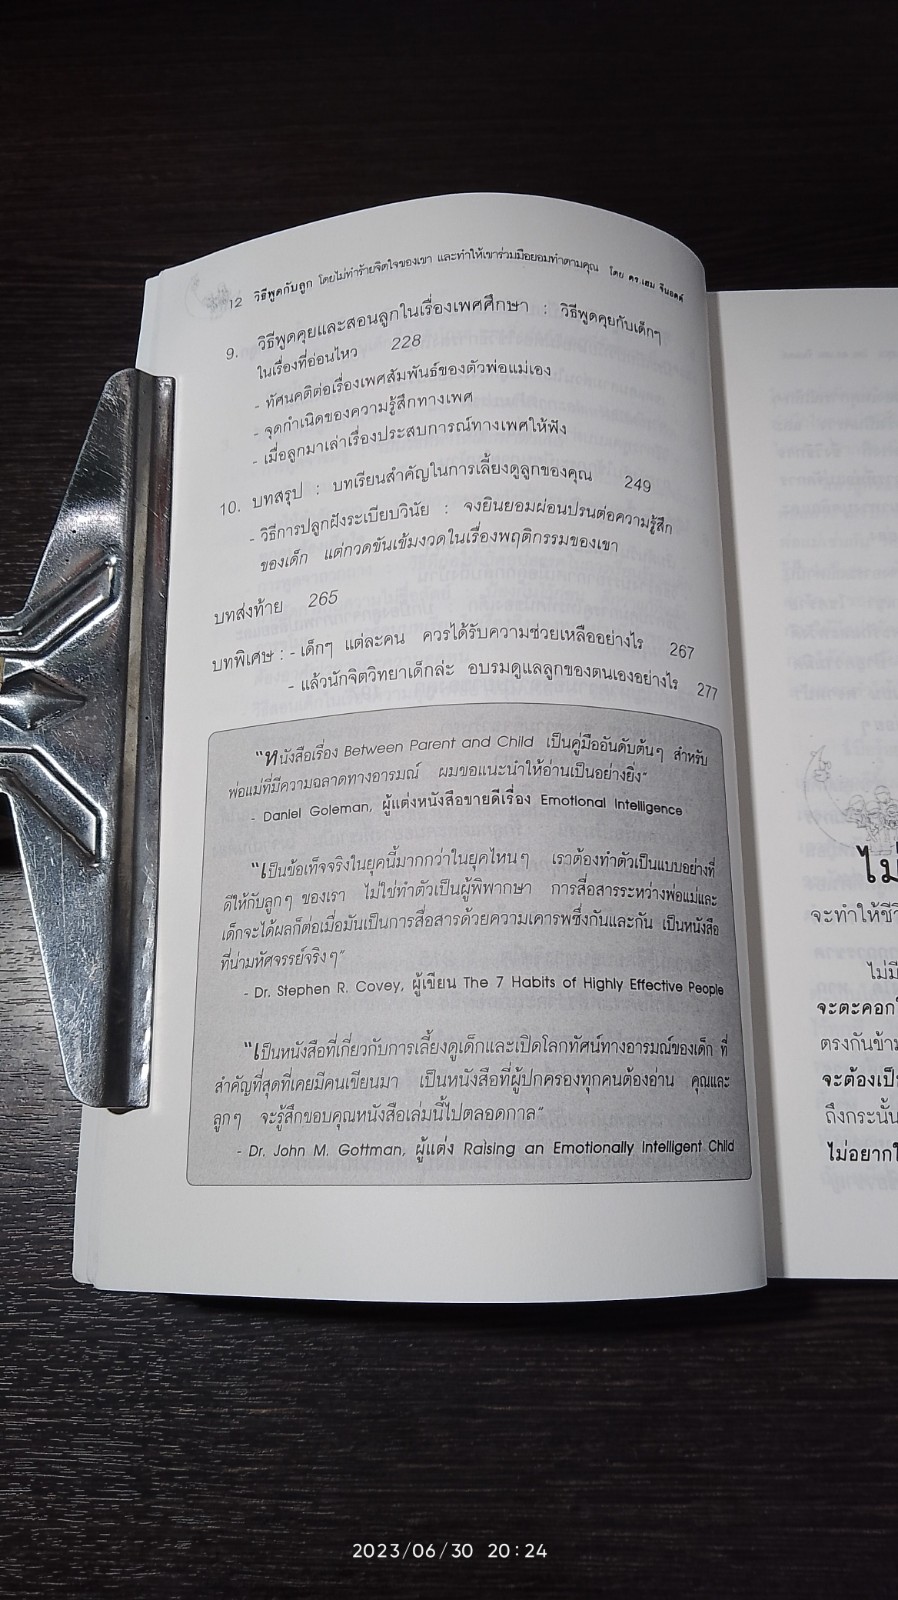 12 วิธีพูดกับลูก โดยไม่ทำร้ายจิตใจของเขา และทำให้เขาร่วมมือยอมทำตามคุณ โดย ดร.เฮม จีนอตต์
9. วิธีพูดคุยและสอนลูกในเรื่องเพศศึกษา : วิธีพูดคุยกับเด็กๆ
ในเรื่องที่อ่อนไหว 228
- ทัศนคติต่อเรื่องเพศสัมพันธ์ของตัวพ่อแม่เอง
- จุดกำเนิดของความรู้สึกทางเพศ
- เมื่อลูกมาเล่าเรื่องประสบการณ์ทางเพศให้ฟัง
10. บทสรุป : บทเรียนสำคัญในการเลี้ยงดูลูกของคุณ 249
- วิธีการปลูกฝังระเบียบวินัย : จงยินยอมผ่อนปรนต่อความรู้สึก
ของเด็ก แต่กวดขันเข้มงวดในเรื่องพฤติกรรมของเขา
บทส่งท้าย 265
บทพิเศษ : - เด็กๆ แต่ละคน ควรได้รับความช่วยเหลืออย่างไร 267
- แล้วนักจิตวิทยาเด็กล่ะ อบรมดูแลลูกของตนเองอย่างไร 277
"หนังสือเรื่อง Between Parent and Child เป็นคู่มืออันดับต้นๆ สำหรับ
พ่อแม่ที่มีความฉลาดทางอารมณ์ ผมขอแนะนำให้อ่านเป็นอย่างยิ่ง"
- Daniel Goleman, ผู้แต่งหนังสือขายดีเรื่อง Emotional Intelligence
"เป็นข้อเท็จจริงในยุคนี้มากกว่าในยุคไหนๆ เราต้องทำตัวเป็นแบบอย่างที่
ดีให้กับลูกๆ ของเรา ไม่ใช่ทำตัวเป็นผู้พิพากษา การสื่อสารระหว่างพ่อแม่และ
เด็กจะได้ผลก็ต่อเมื่อมันเป็นการสื่อสารด้วยความเคารพซึ่งกันและกัน เป็นหนังสือ
ที่น่ามหัศจรรย์จริงๆ"
- Dr. Stephen R. Covey, ผู้เขียน The 7 Habits of Highly Effective People
"เป็นหนังสือที่เกี่ยวกับการเลี้ยงดูเด็กและเปิดโลกทัศน์ทางอารมณ์ของเด็ก ที่
สำคัญที่สุดที่เคยมีคนเขียนมา เป็นหนังสือที่ผู้ปกครองทุกคนต้องอ่าน คุณและ
ลูกๆ จะรู้สึกขอบคุณหนังสือเล่มนี้ไปตลอดกาล"
- Dr. John M. Gottman, ผู้แต่ง Raising an Emotionally Intelligent Child
ไม่
จะทำให้ชีวิ
ไม่มี
จะตะคอก
ตรงกันข้าม
จะต้องเป็
ถึงกระนั้น
ไม่อยากใ
2023/06/30 20:24